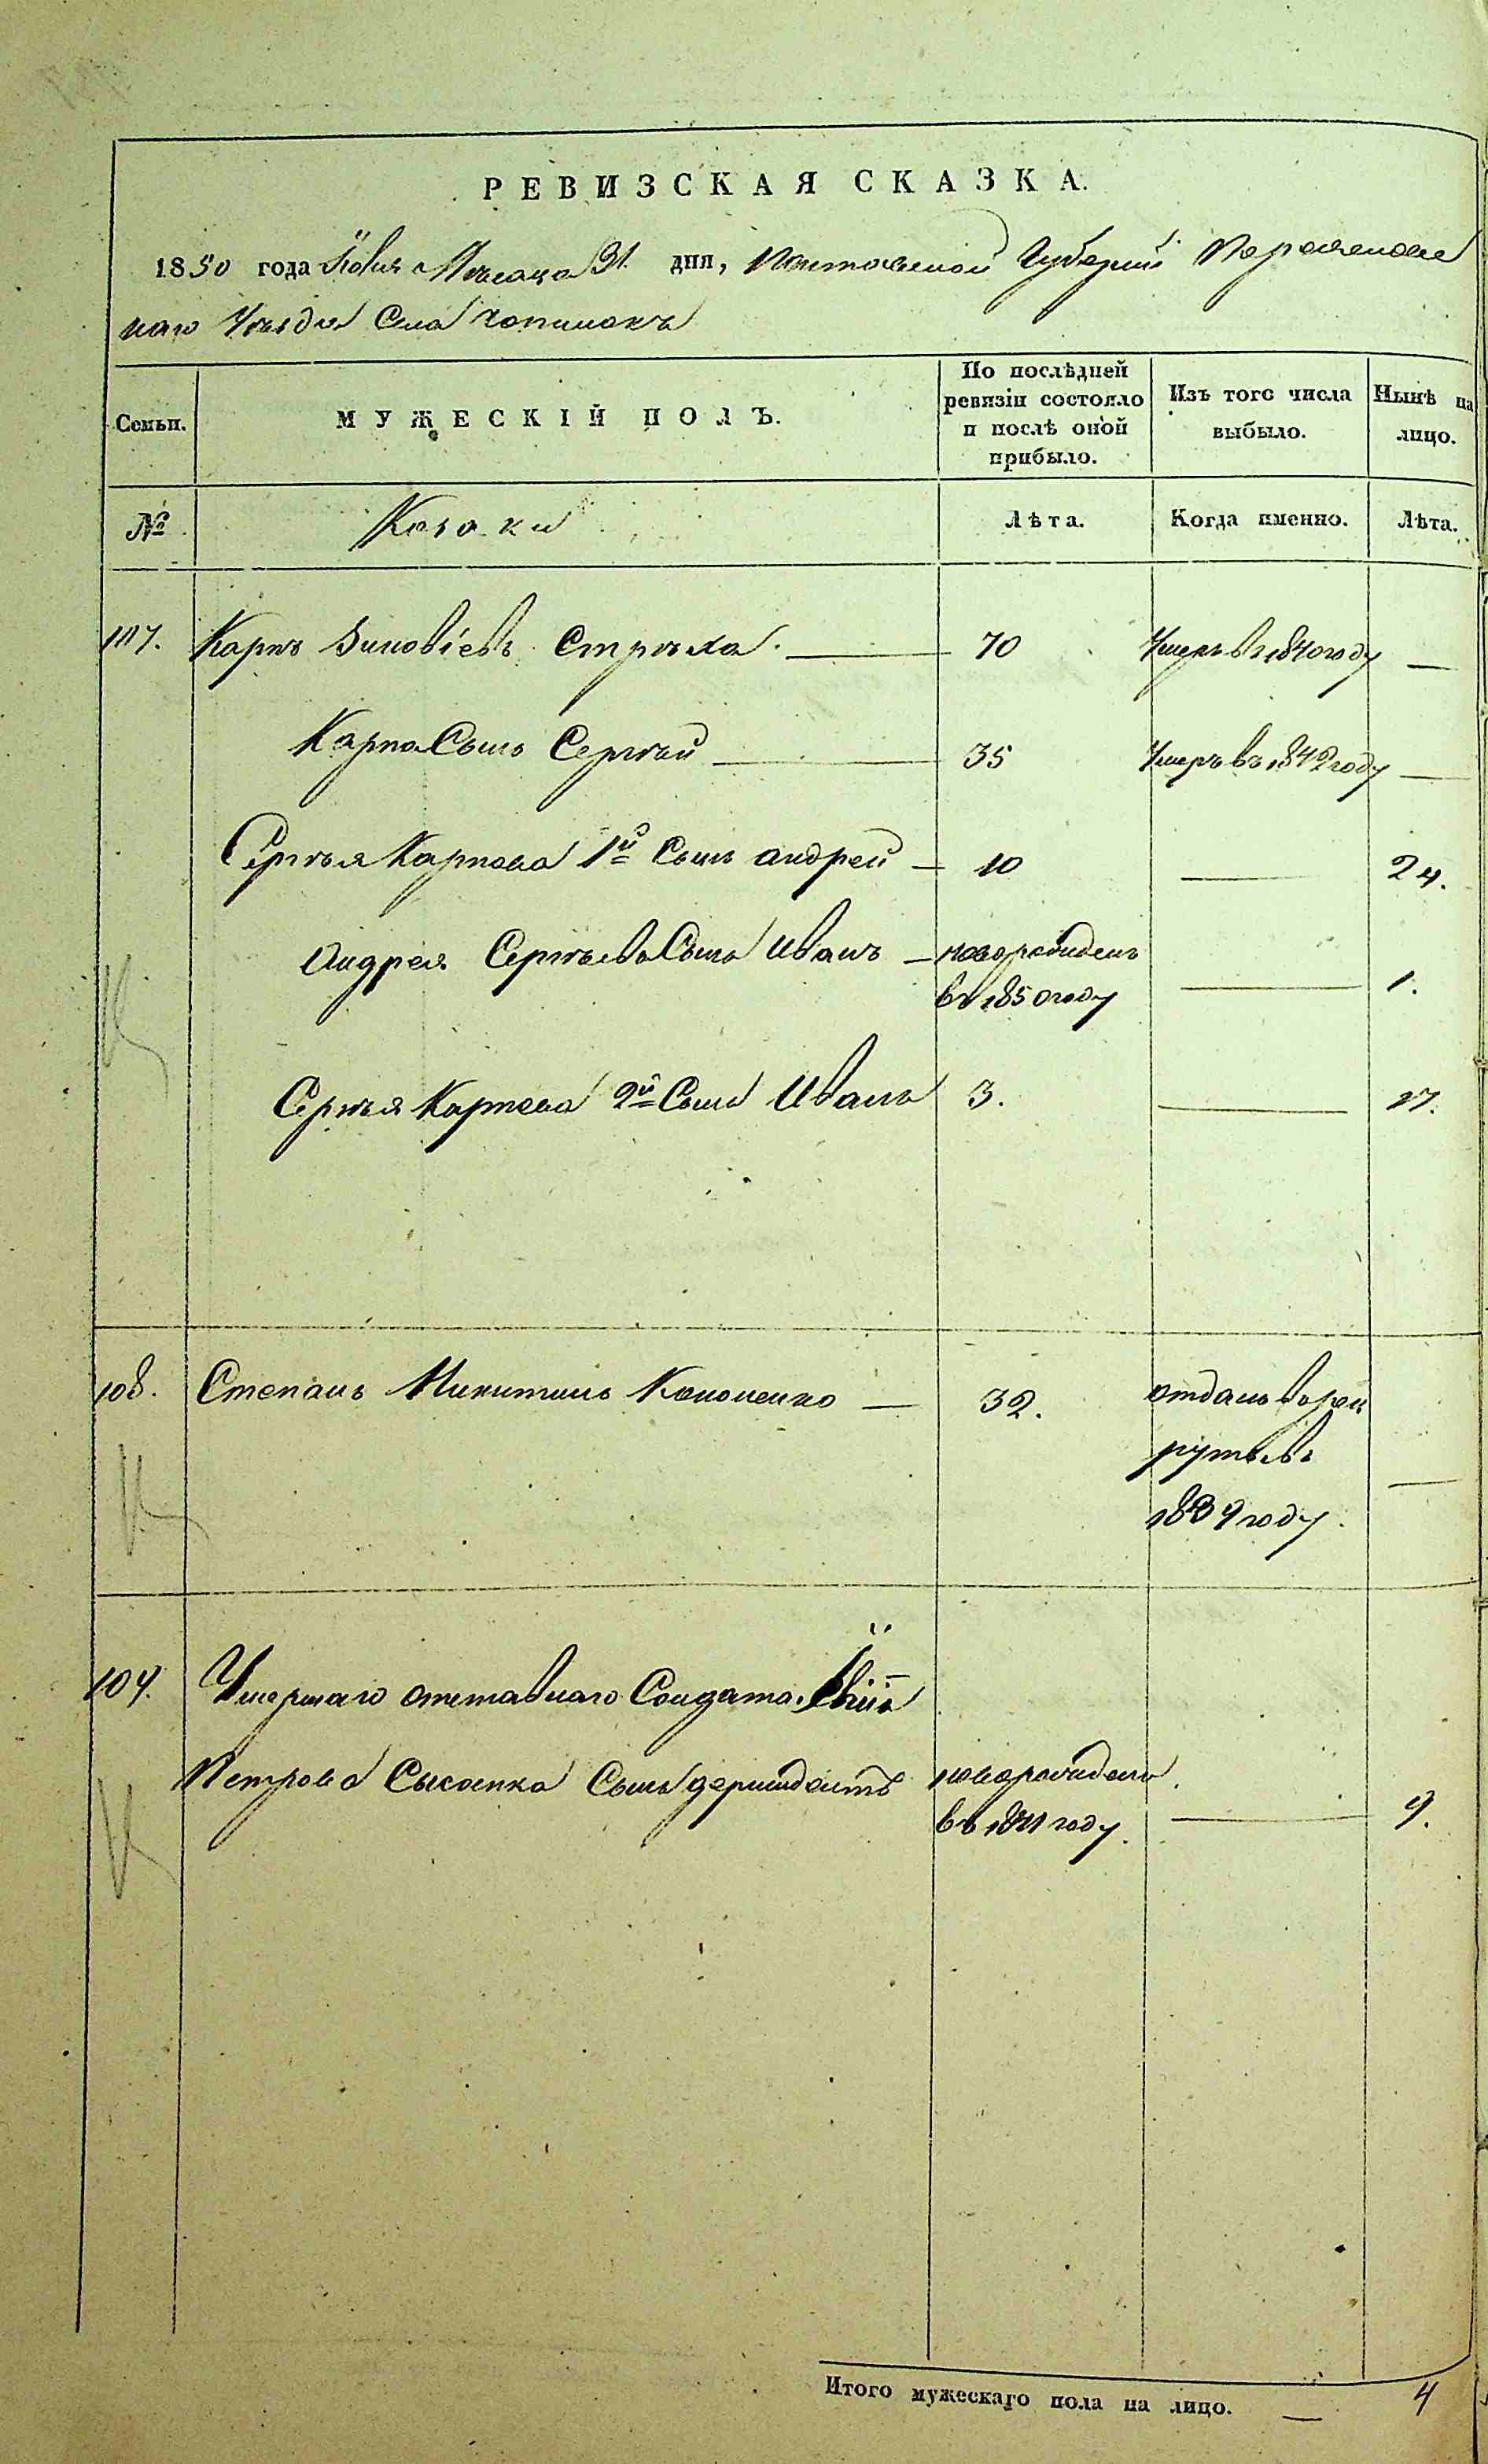 РЕВИЗСКАЯ СКАЗКА.
1850 года Іюля Месяца 31 дня, Полтавской Губерніи Переяславс
каго Уѣзда Села
Семьи.
МУЖЕСКІЙ ПОЛЪ.
По послѣдней ревизіи состояло и послѣ оной прибыло.
Изъ того числа выбыло.
Нынѣ на лицо.
№
Козаки
Лѣта.
Когда именно.
Лѣта.
107. Карпъ Зиновіевъ Стрѣха. — 70 Умеръ въ 1840 году —
Карпа Сынъ Сергѣй — 35 Умеръ въ 1842 году —
Сергѣя Карпова 1й Сынъ Андрей — 10 — 24.
Андрея Сергѣева Сынъ Иванъ — новорожденъ
въ 1850 году — 1.
Сергѣя Карпова 2й Сынъ Иванъ 3. — 17.
108. Степанъ Никитинъ Кононенко — 32. отданъ в рек
руты въ
1839 году. —
109. Умершаго отставнаго Солдата
Петрова Сынъ новорожденъ
въ 1841 году. — 9.
Итого мужескаго пола на лицо. — 4